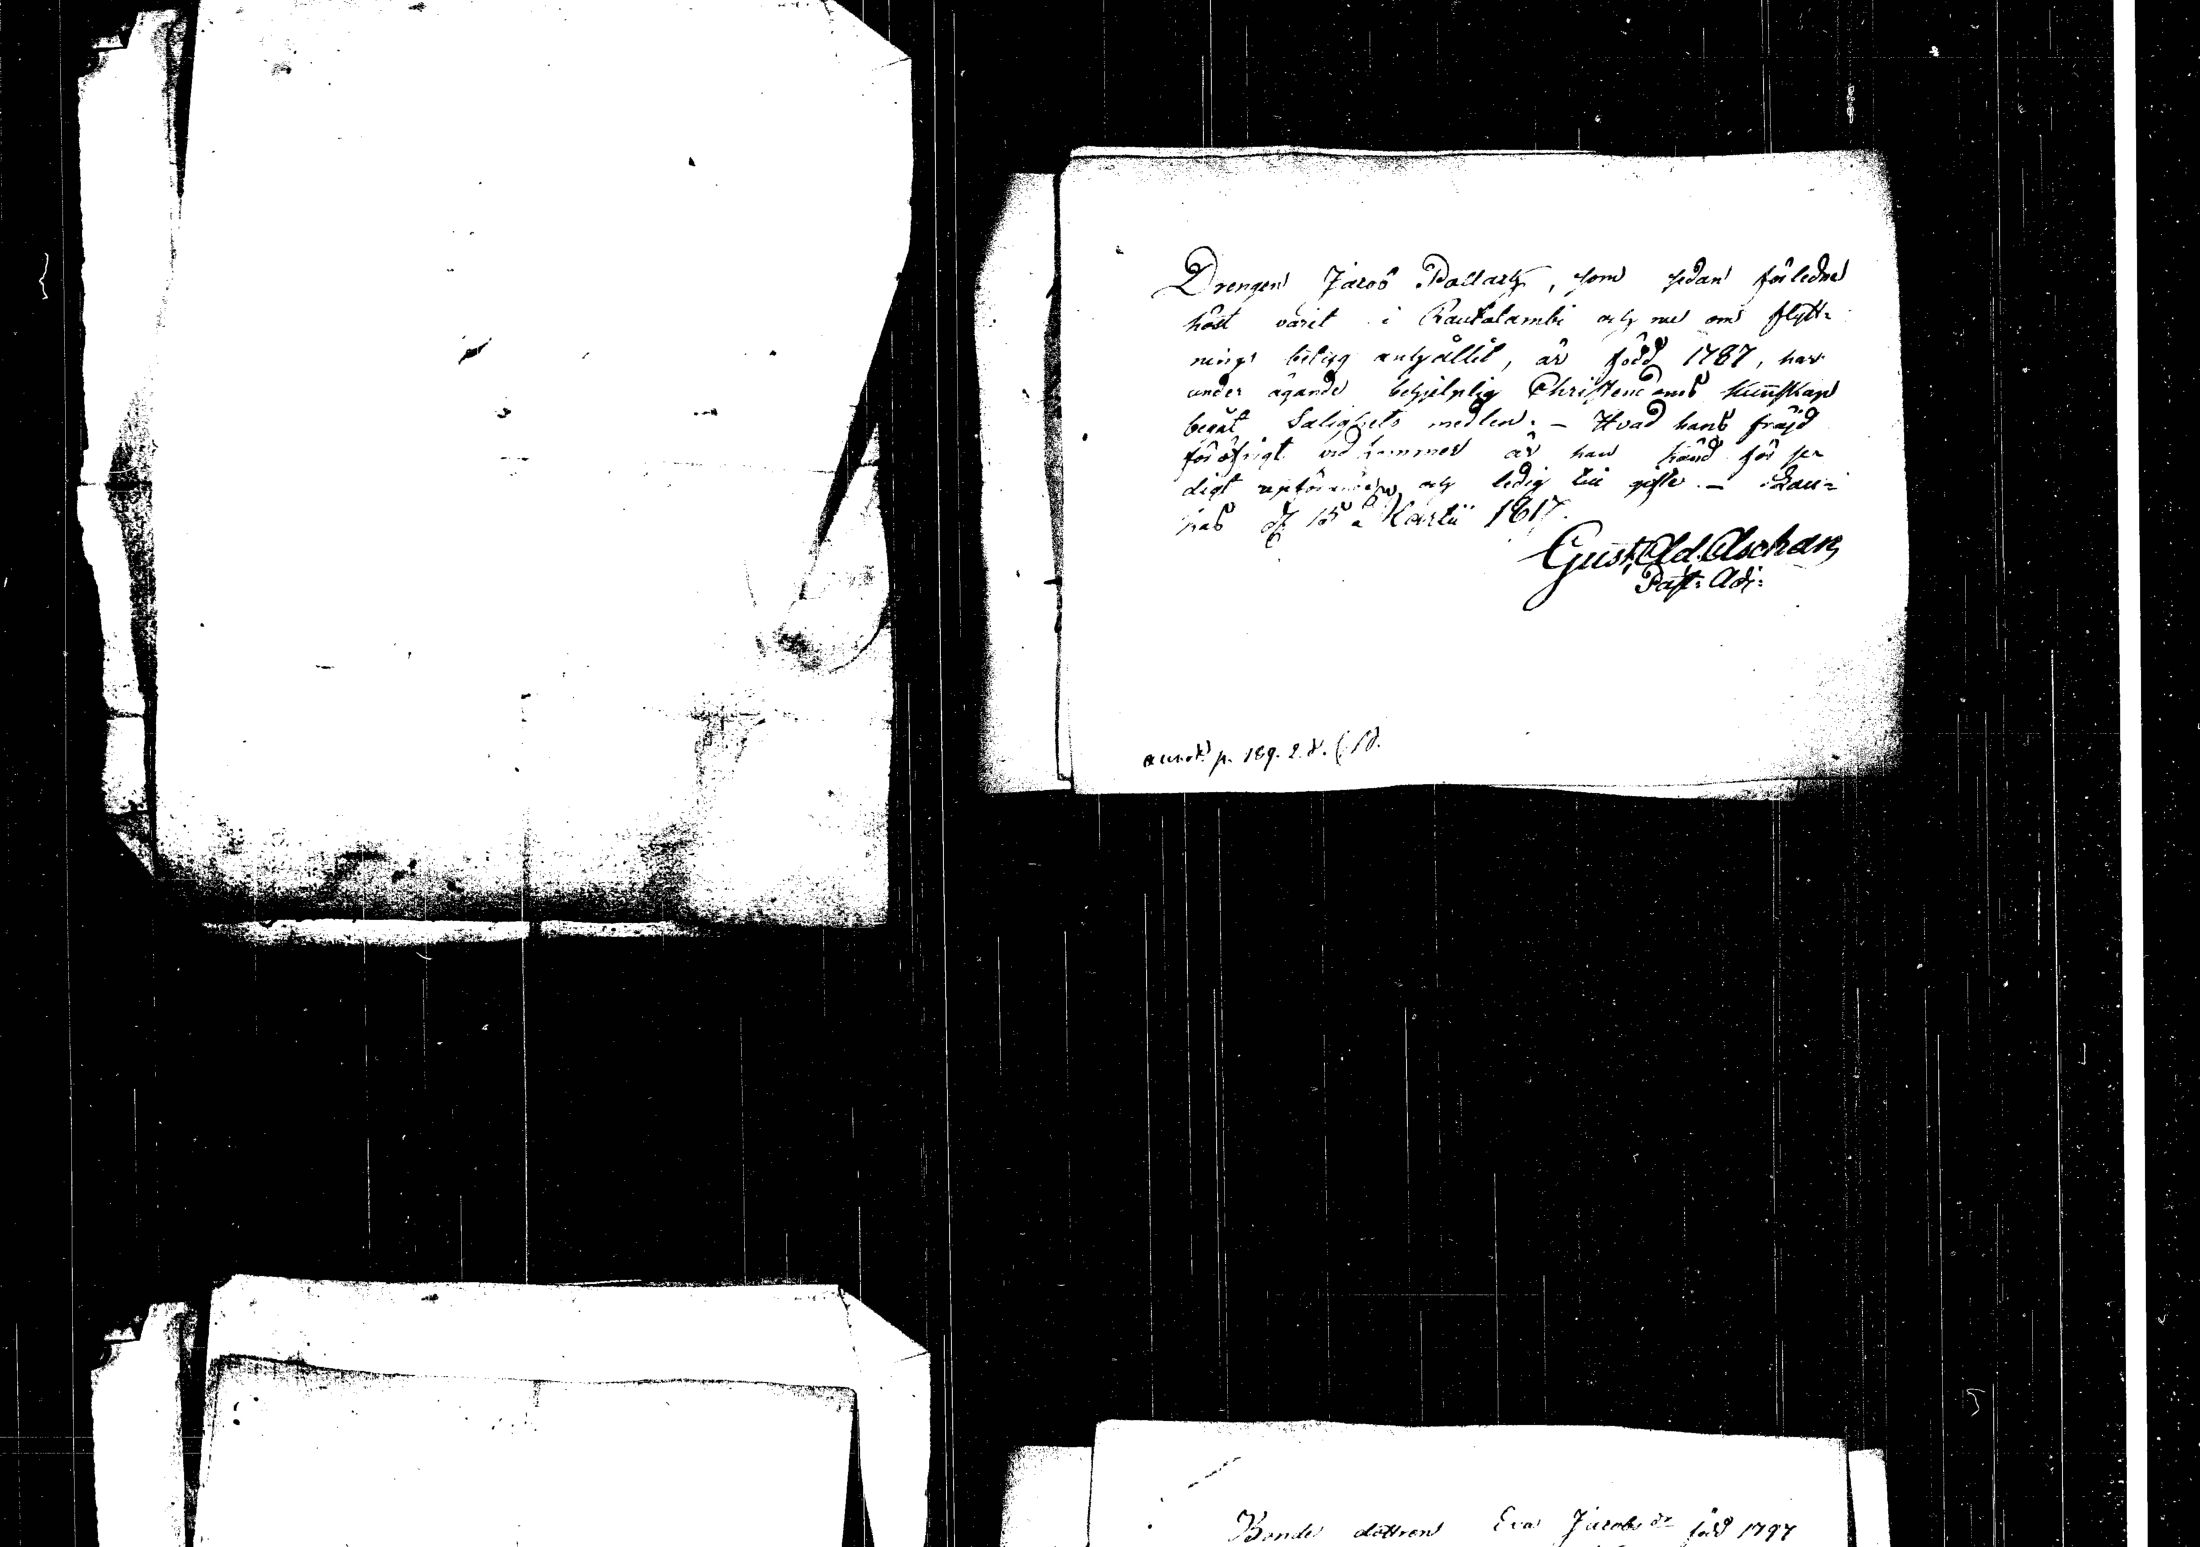 Drengen Jacob Pallartz, som sedan förledne
höst varit i Rautalambi och nu om flytt=
nings betyg anhållit, är född 1787, har
under ägande behjelplig Christendoms kunskap
begåt Salighets medlen. – Hvad hans fräjd
föröfrigt vid kommer är han känd för se
digt uppförande och ledig till gifte. –
1817.
Gust. Ad. Aschan
Past: Adj:
annot. p. 189.
Bonde dottren Eva Jacobsdr född 1797